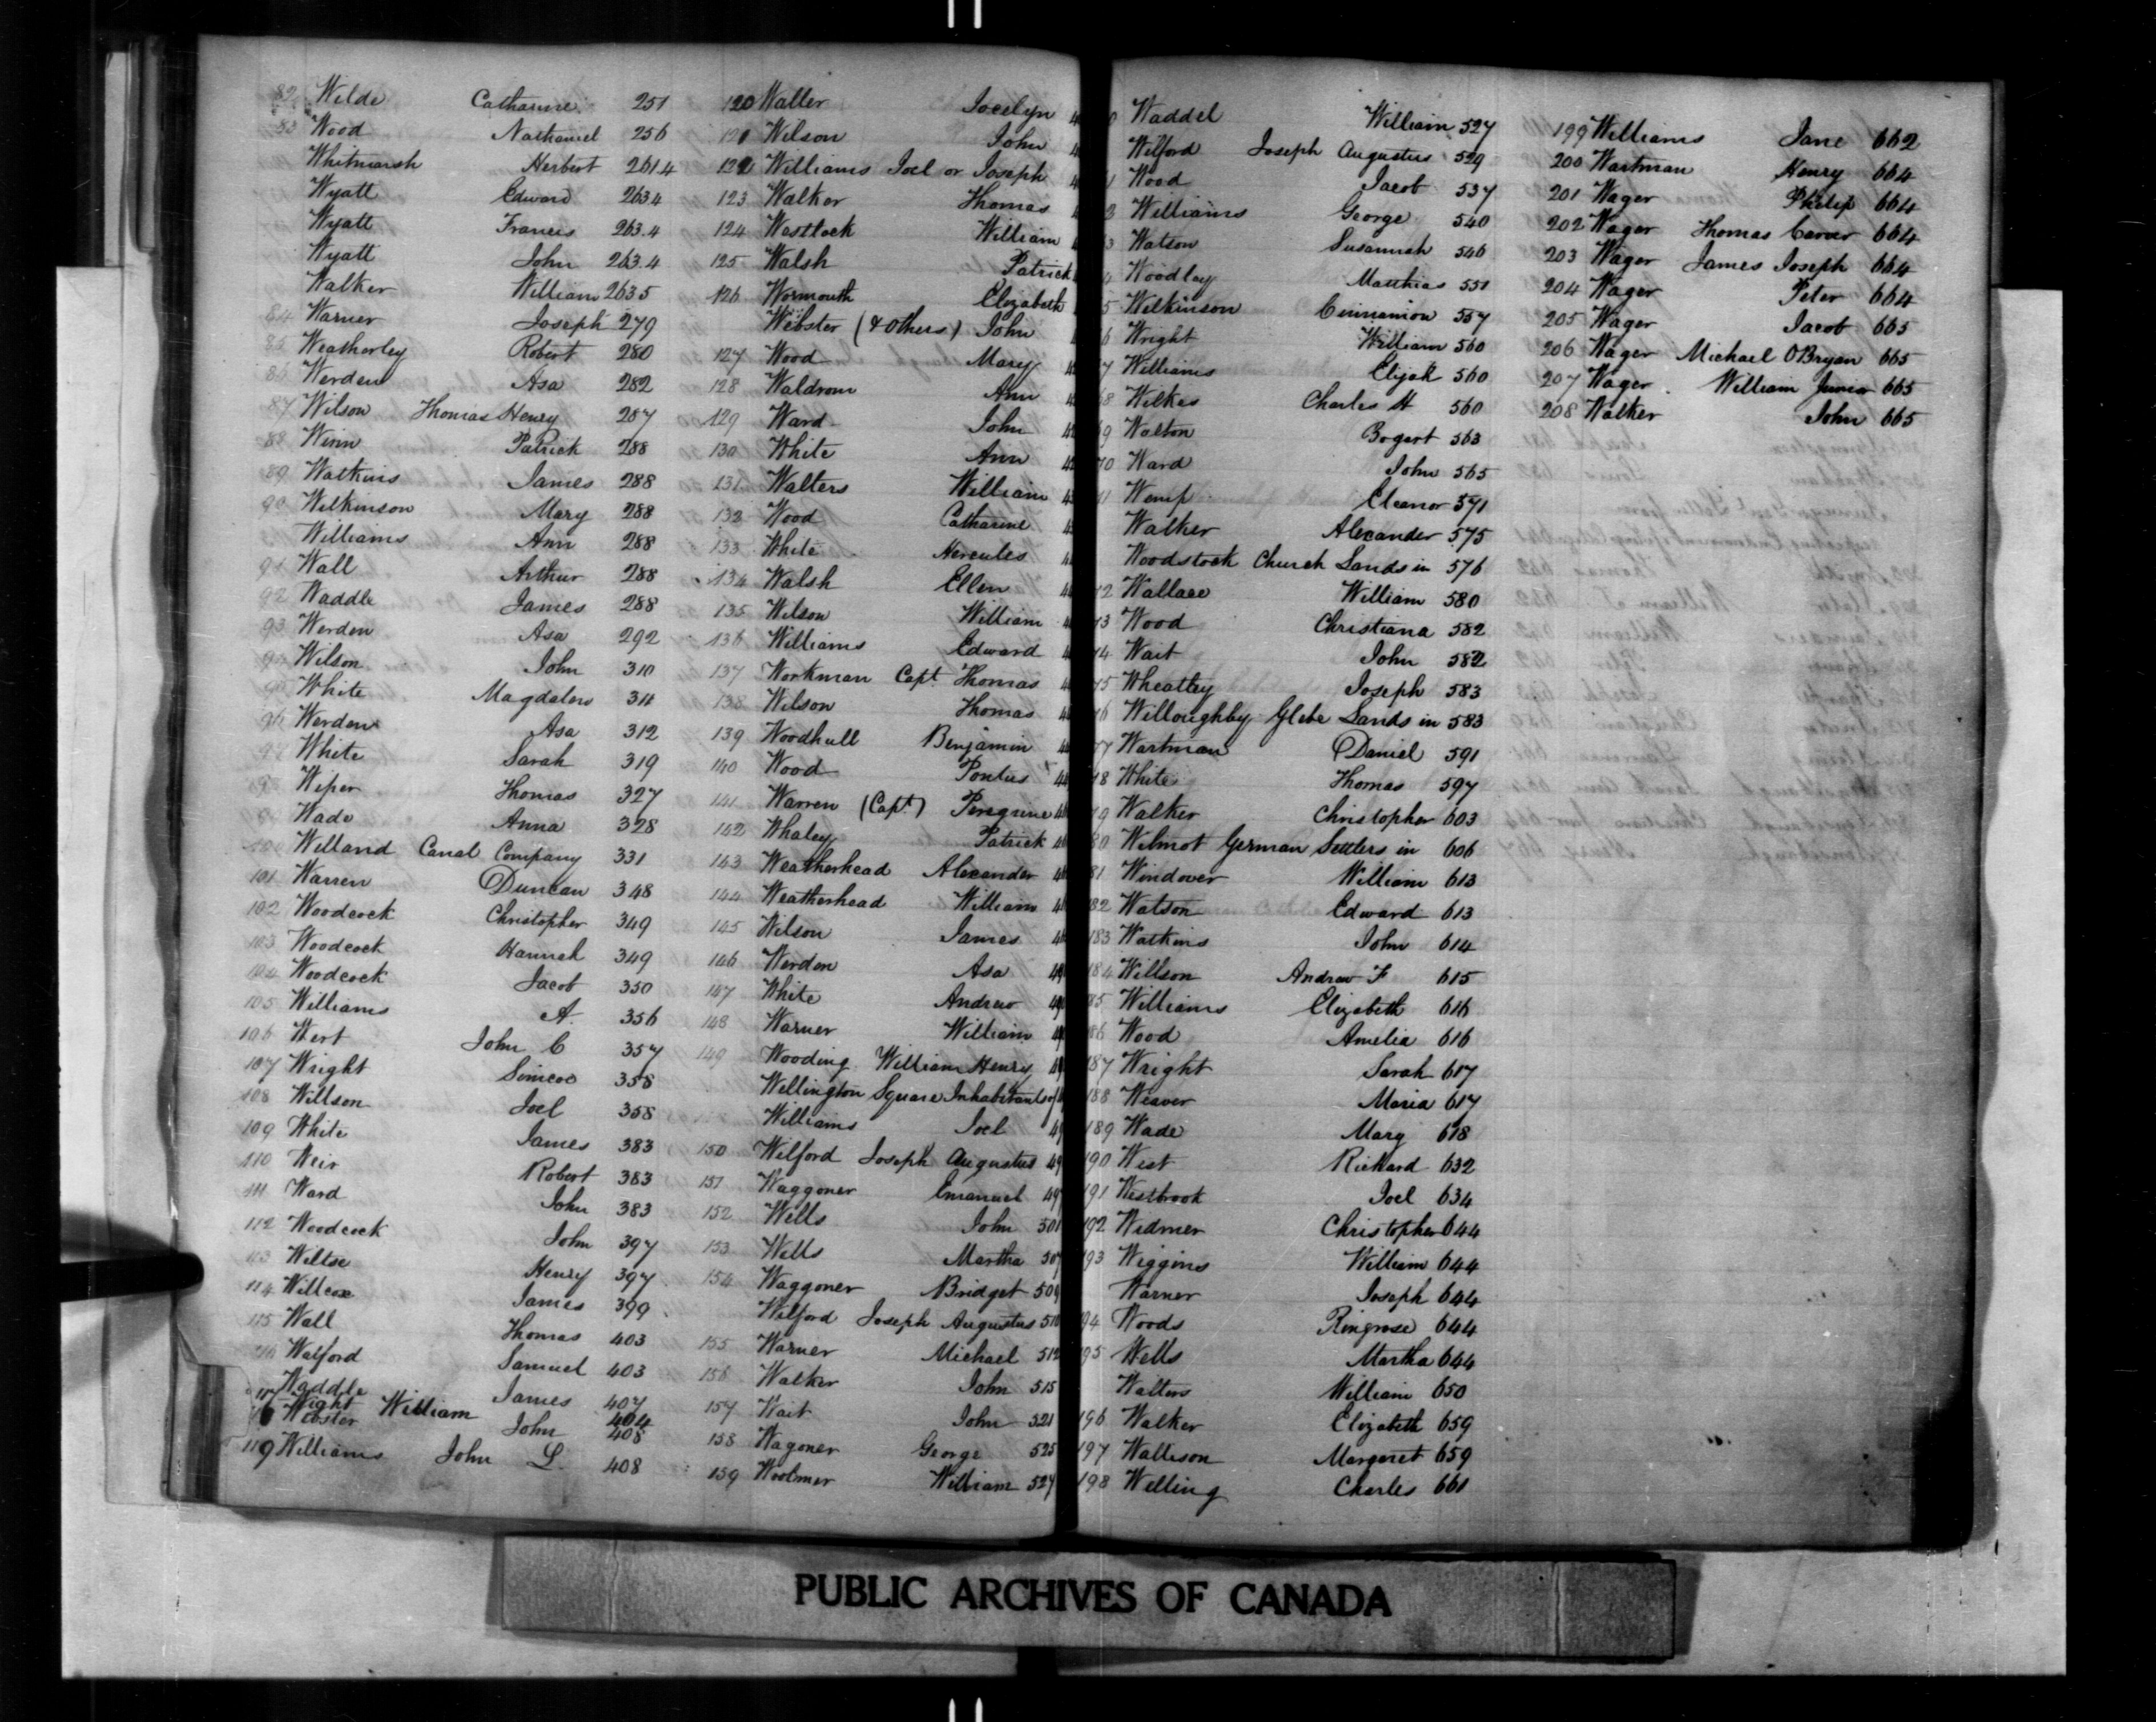 82 Wilde Catharine 251
83 Wood Nathaniel 256
Whitmarsh Herbert 261.4
Wyatt Edward 263.4
Wyatt Francis 263.4
Wyatt John 263.4
Walker William 263 5
84 Warner Joseph 279
85 Weatherley Robert 280
86 Werden Asa 282
87 Wilson Thomas Henry 287
88 Winn Patrick 288
89 Watkins James 288
90 Wilkinson Mary 288
Williams Ann 288
91 Wall Arthur 288
92 Waddle James 288
93 Werden Asa 292
94 Wilson John 310
95 White Magdalen 311
96 Werden Asa 312
97 White Sarah 319
98 Wiper Thomas 327
99 Wade Anna 328
100 Welland Canal Company 331
101 Warren Duncan 348
102 Woodcock Christopher 349
103 Woodcock Hannah 349
104 Woodcock Jacob 350
105 Williams A. 356
106 Wert John C 357
107 Wright Simcoe 358
108 Willson Joel 358
109 White James 383
110 Weir Robert 383
111 Ward John 383
112 Woodcock John 397
113 Wiltse Henry 397
114 Willcox James 399
115 Wall Thomas 403
116 Walford Samuel 403
117 Waddle James 407
Wight William 404
Webster John 408
119 Williams John L. 408
120 Waller Jocelyn
121 Wilson John
122 Williams Joel or Joseph
123 Walker Thomas
124 Westlock William
125 Walsh Patrick
126 Wormouth Elizabeth
Webster (& others) John
127 Wood Mary
128 Waldrom Ann
129 Ward John
130 White Ann
131 Walters William
132 Wood Catharine
133 White Hercules
134 Walsh Ellen
135 Wilson William
136 Williams Edward
137 Workman Capt. Thomas
138 Wilson Thomas
139 Woodhull Benjamin
140 Wood Pontus
141 Warren (Capt.) Peregrine
142 Whaley Patrick
143 Weatherhead Alexander
144 Weatherhead William
145 Wilson James
146 Werden Asa
147 White Andrew
148 Warner William
149 Wooding William Henry
Wellington Square Inhabitants of
Williams Joel
150 Wilford Joseph Augustus
151 Waggoner Emanuel
152 Wells John 501
153 Wells Martha 507
154 Waggoner Bridget 509
Wilford Joseph Augustus 510
155 Warner Michael 512
156 Walker John 515
157 Wait John 521
158 Wagoner George 525
159 Woolmer William 527
Waddel William 527
Wilford Joseph Augustus 529
1 Wood Jacob 537
2 Williams George 540
3 Watson Susannah 546
4 Woodley Matthias 551
5 Wilkinson Cinnamon 557
6 Wright William 560
7 Williams Elijah 560
68 Wilkes Charles H 560
69 Walton Bogart 563
70 Ward John 565
71 Wemp Eleanor 571
Walker Alexander 575
Woodstock Church Lands in 576
72 Wallace William 580
73 Wood Christiana 582
74 Wait John 582
75 Wheatley Joseph 583
76 Willoughby Glebe Lands in 583
77 Wartman Daniel 591
78 White Thomas 597
79 Walker Christopher 603
80 Wilmot German Settlers in 606
81 Windover William 613
82 Watson Edward 613
183 Watkins John 614
184 Willson Andrew F 615
85 Williams Elizabeth 616
86 Wood Amelia 616
187 Wright Sarah 617
188 Weaver Maria 617
189 Wade Mary 618
190 West Richard 632
191 Westbrook Joel 634
192 Widmer Christopher 644
193 Wiggins William 644
Warner Joseph 644
94 Woods Ringrose 644
95 Wells Martha 644
Walters William 650
196 Walker Elizabeth 659
197 Wallison Margaret 659
198 Welling Charles 661
199 Williams Jane 662
200 Wartman Henry 664
201 Wager Philip 664
202 Wager Thomas Carver 664
203 Wager James Joseph 664
204 Wager Peter 664
205 Wager Jacob 665
206 Wager Michael OBryan 665
207 Wager William Junior 665
208 Walker John 665
PUBLIC ARCHIVES OF CANADA